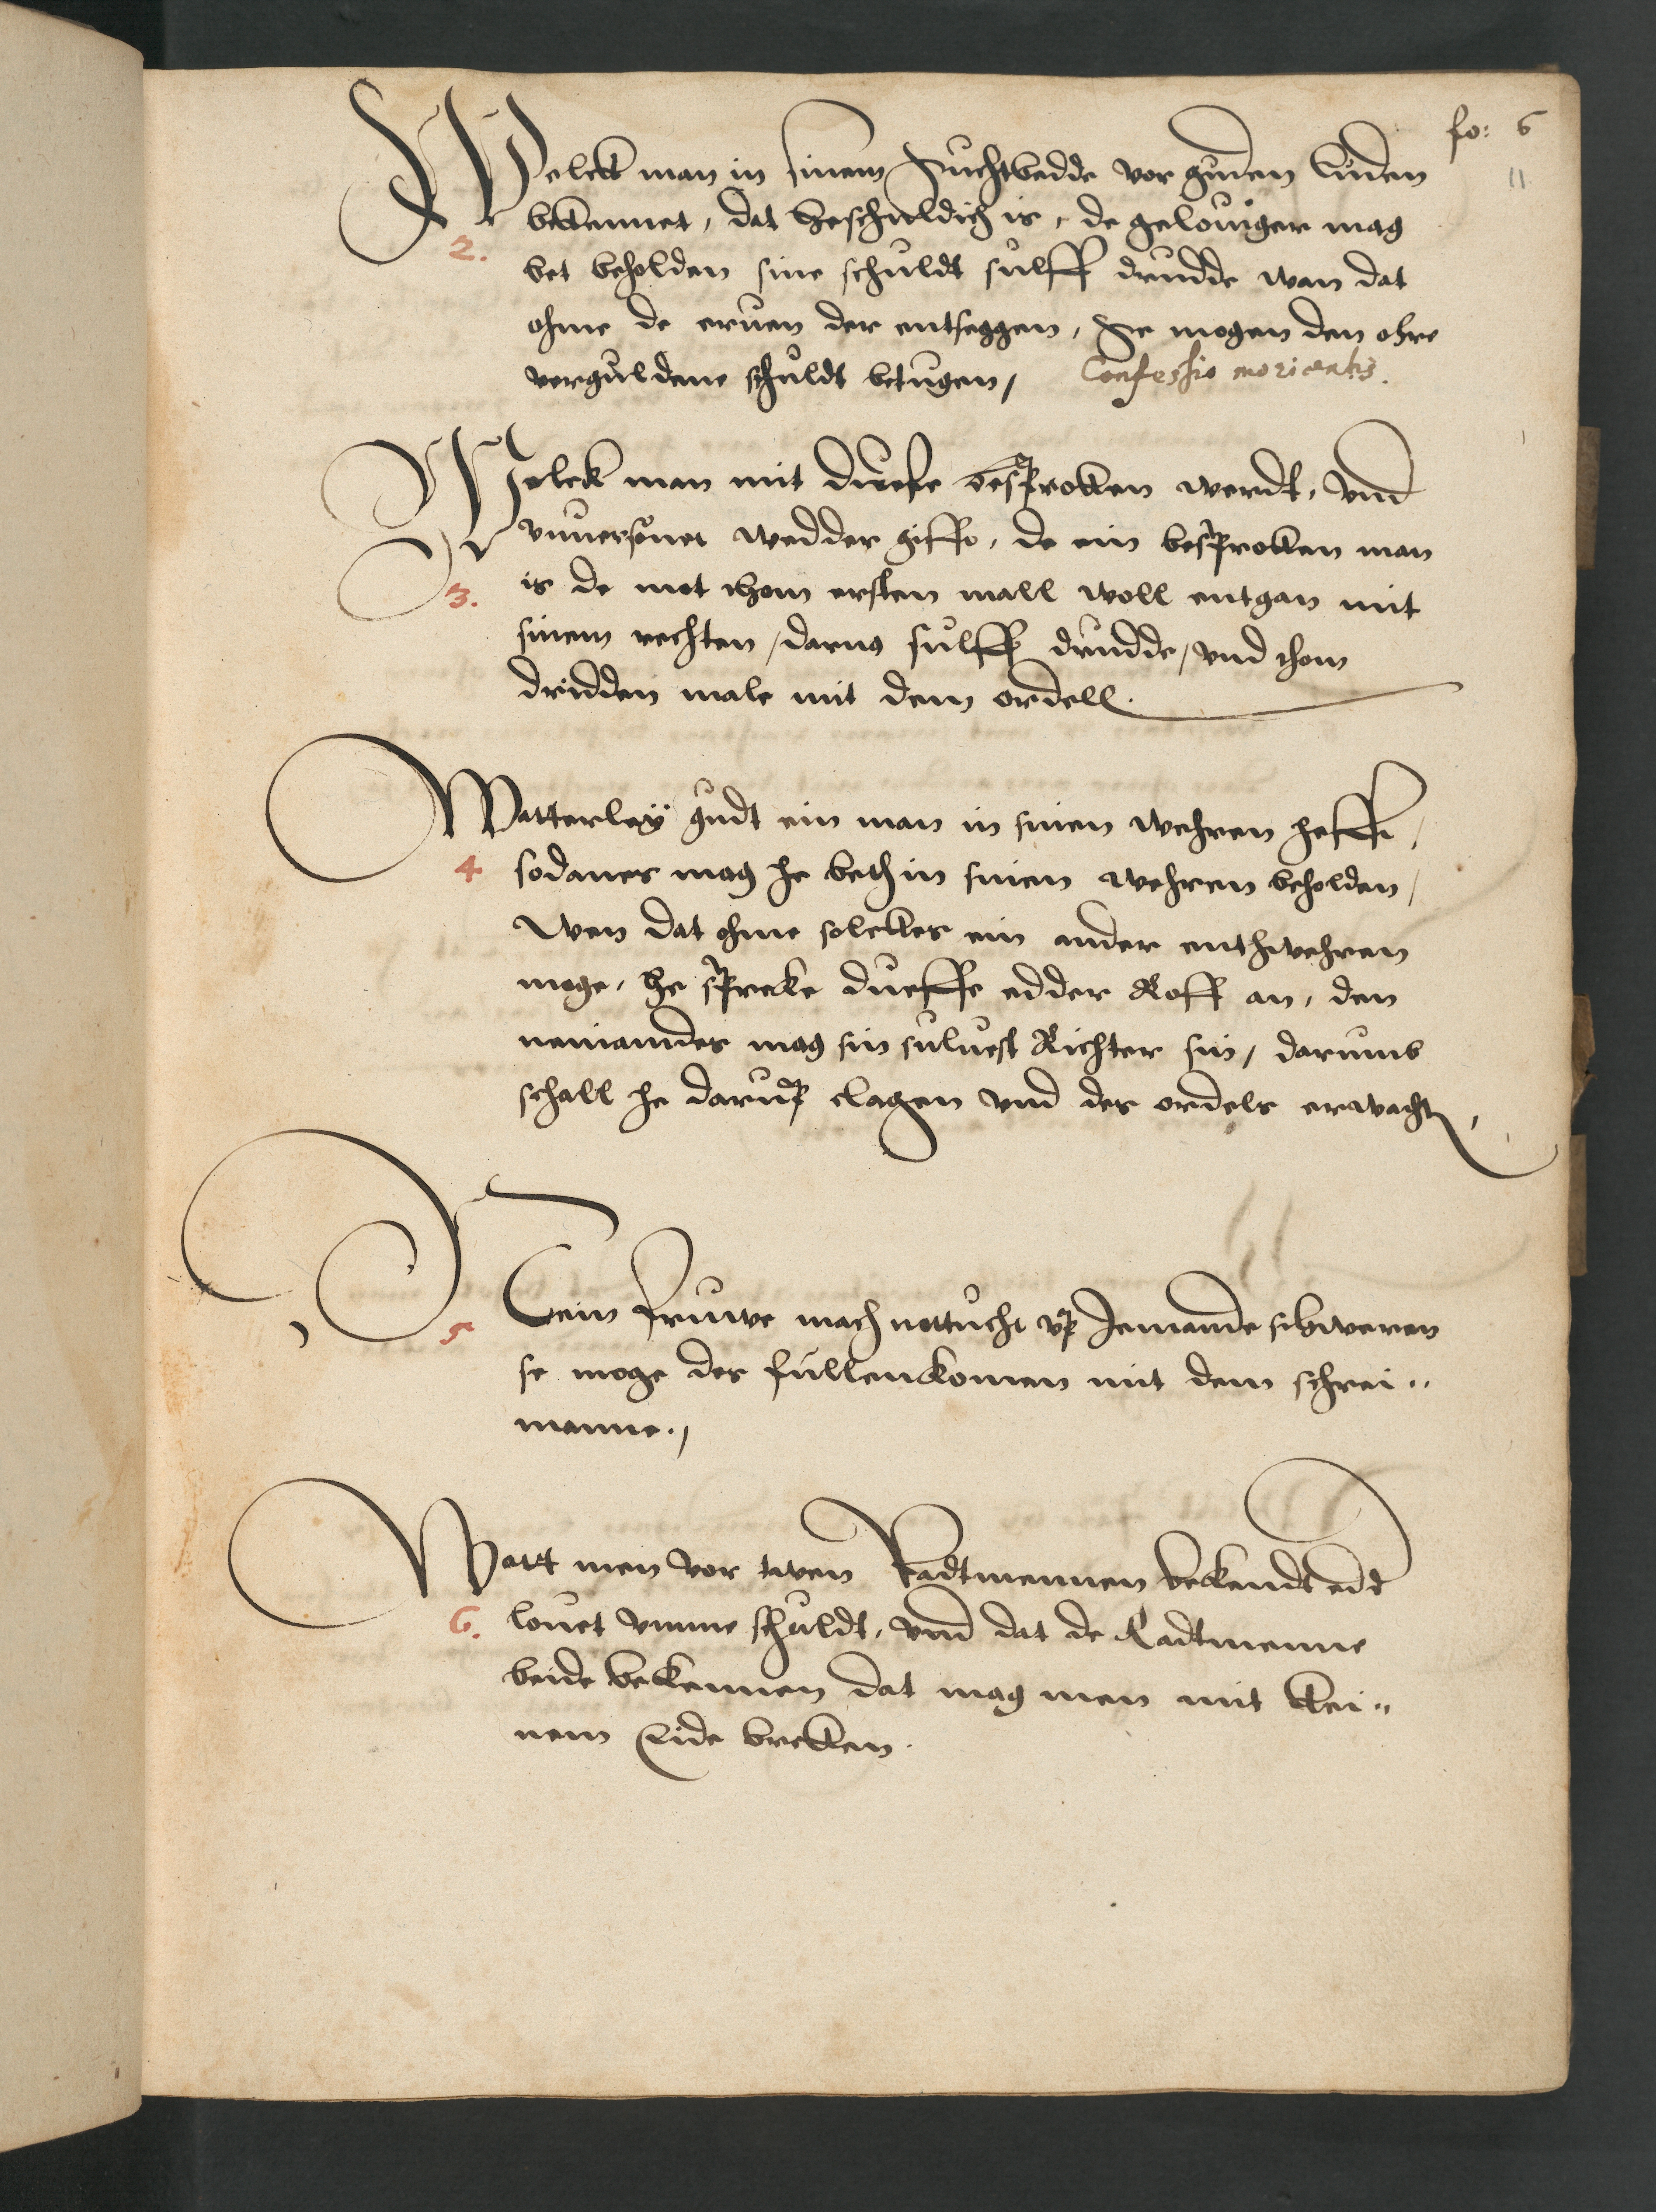 fo: 6
11
Welck man in sinem Suchtbedde vor guden Luden
bekennet, dat he schuldich is, de geloviger mag
2.
bet beholden sine schuldt sulff drudde wan dat
ohme de erven der entseggen, Se mogen den ohre
verguldene schuldt betugen, Confessio morientis.
Welck man mit duefe besproken werdt, vnd
vnuersonet wedder gifft, de ein besproken man
3. is de mot thom ersten mall woll entgan mit
sinem rechten, darna sulff drudde, vnd thom
drudden male mit dem ordell.
Watterley gudt ein man in sinen wehren hefft,
4 sodanes mag he beth in sinen wehren beholden,
wen dat ohme solckes ein ander enthwehren
moge, he spreke dueffe edder Roff an, den
neimandes mag sin sulvest Richter sin, darumb
schall he darup clagen vnd des ordels erwachten,
5 Kein fruwe mach nottucht vp Jemande schweren
se moge des fullenkomen mit dem schrei„
manne.,
Watt men vor twen Radtmennen bekendt edder
6. lovet vmme schuldt, vnd dat de Radtmenne
beide bekennen dat mag men mit kei„
nem Eide breken.